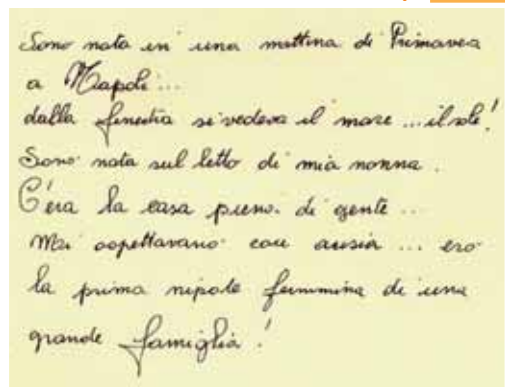 Sono nata in una mattina di Primavera
a Napoli...
dalla finestra si vedeva il mare ... il sole!
Sono nata sul letto di mia nonna.
C'era la casa piena di gente ...
Mi aspettavano con ansia ... ero
la prima nipote femmina di una
grande famiglia!